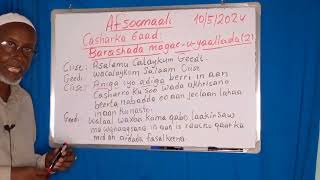 Afsoomaali 10/5/2024
Casharka 6aad:
Barashada magac-u-yaallada(2)
Ciise: Asalamu Calaykum Geedi.
Geedi: wacalaykum Salaam Ciise
Ciise: Aniga iyo adiga berri in aan
Casharro ku soo wada akhrisano
beerta nabadda oo aan jeclaan lahaa
in aan
Geedi: walaal waxba kama qabo laakiin
in aan is raacno qaar ka
mid ah ardada fasalkeena